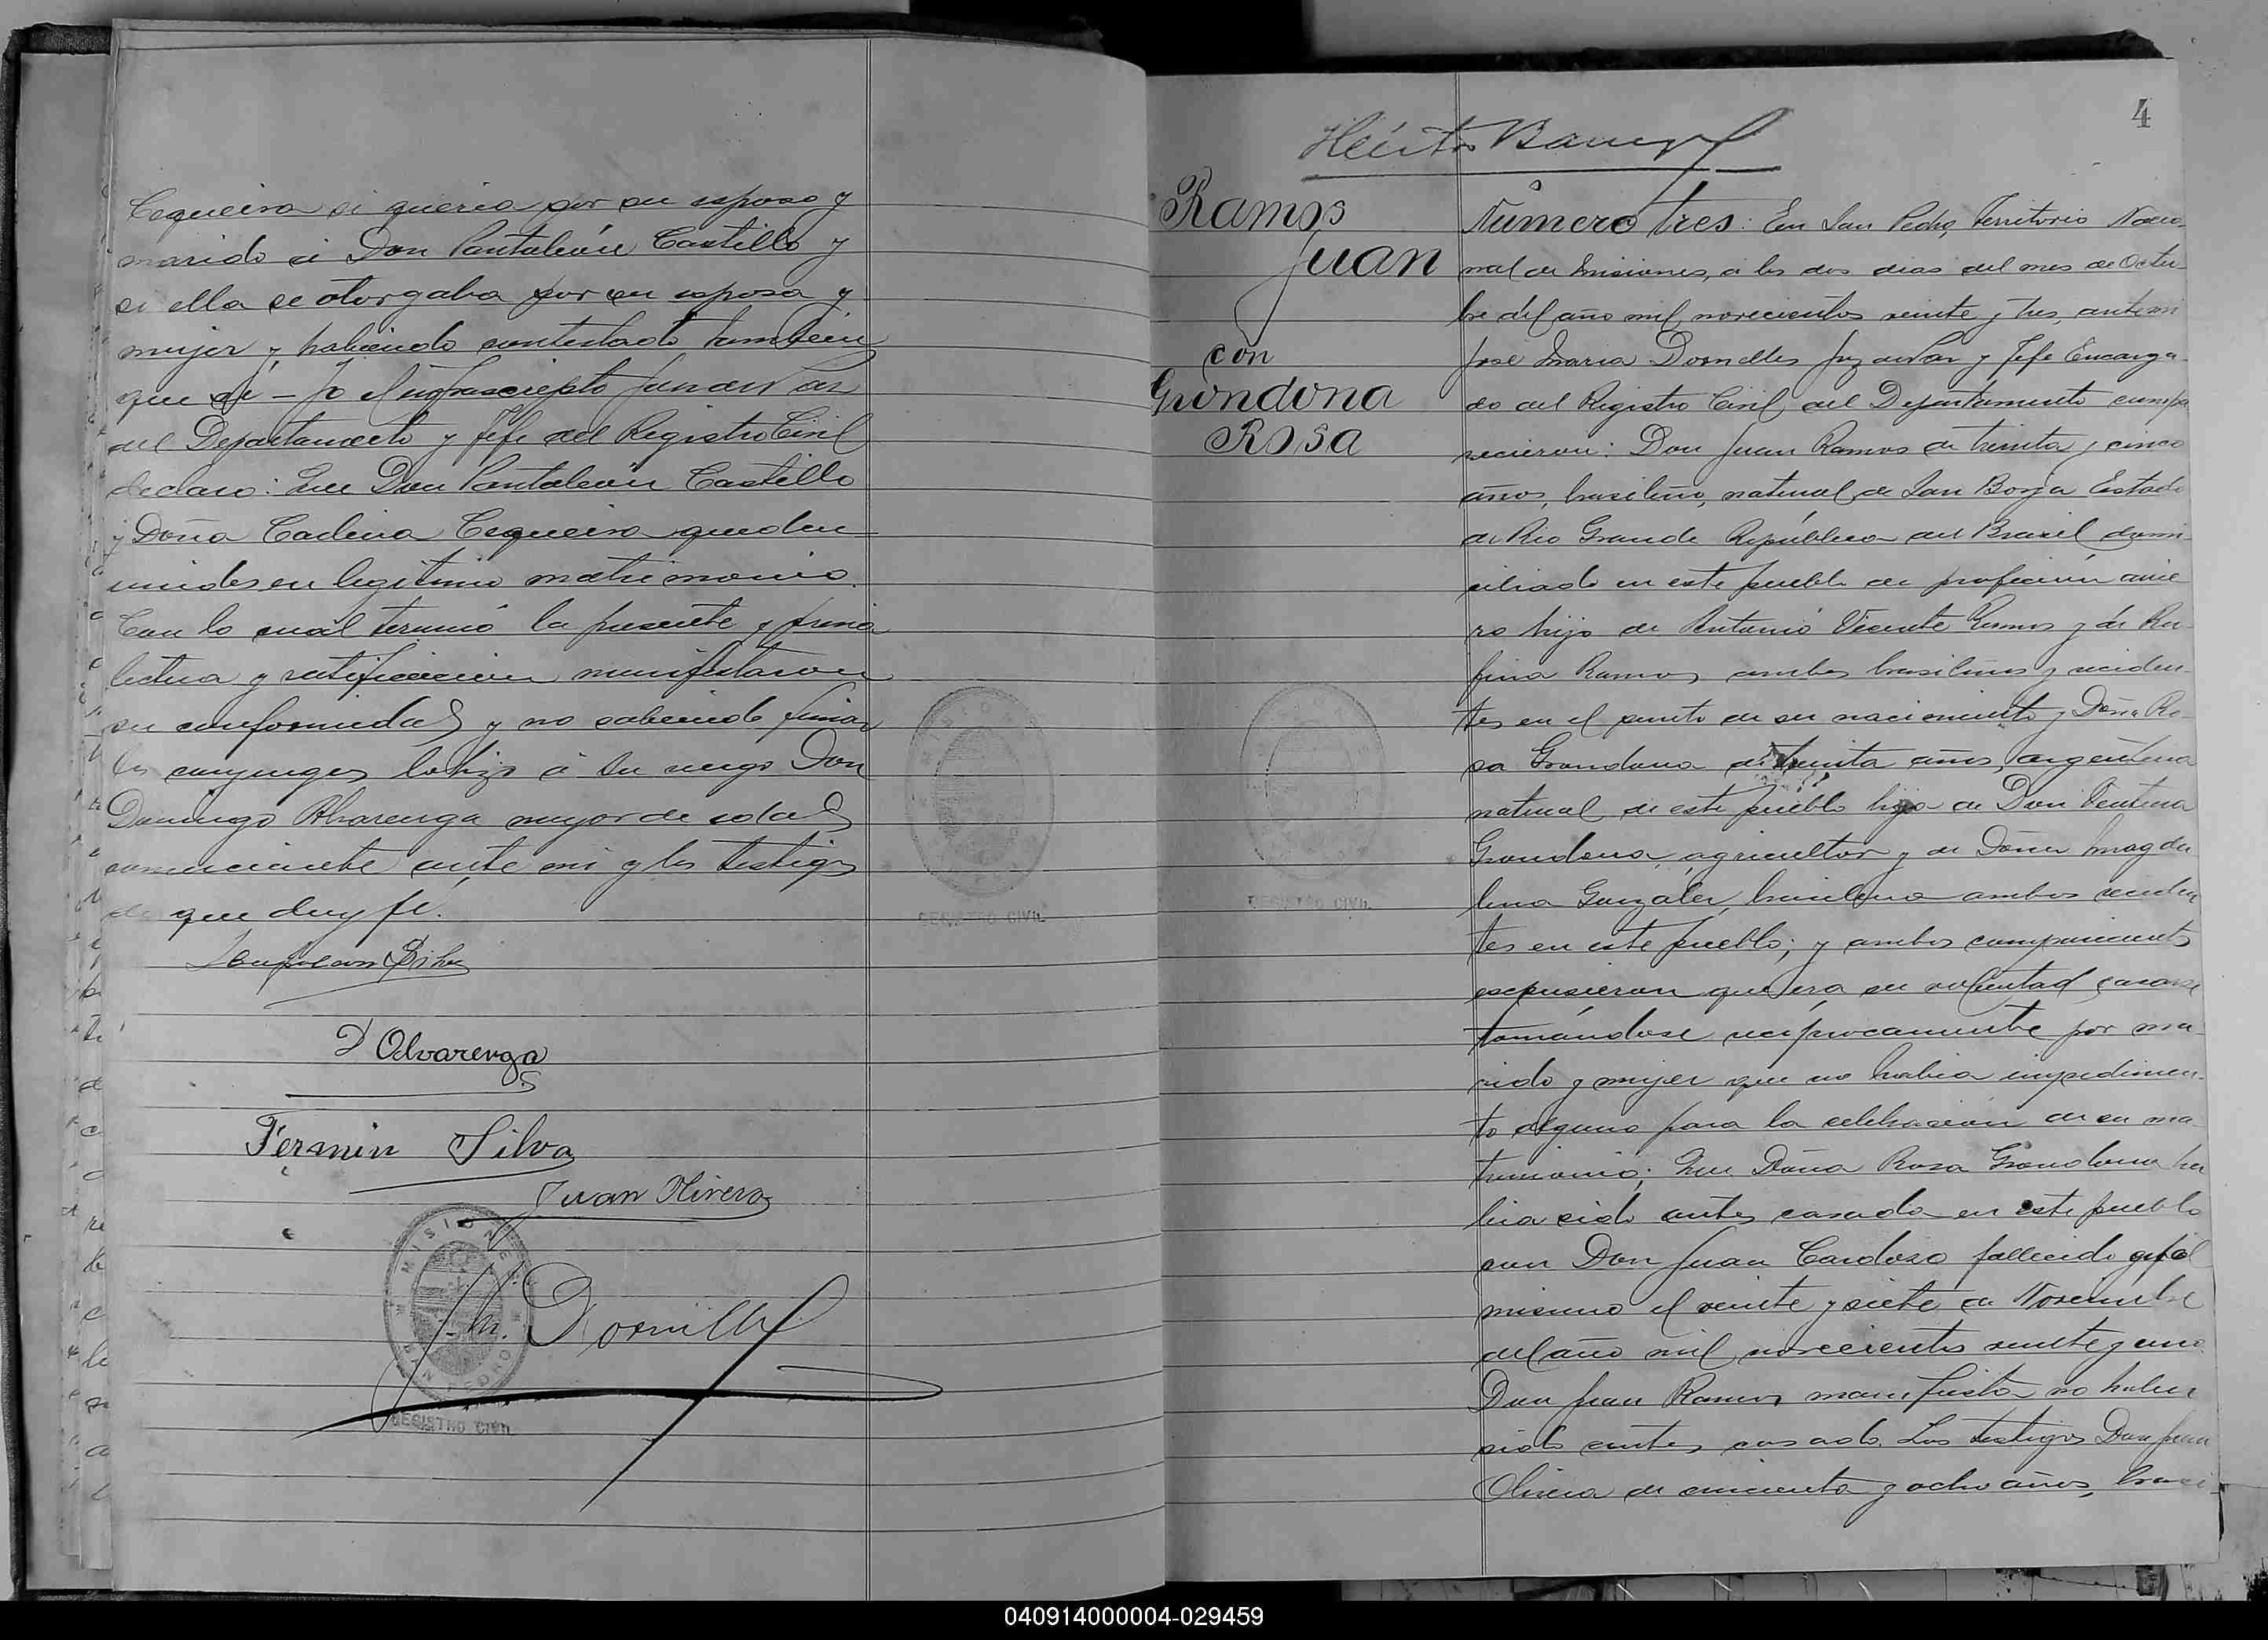 Cequeira si queria por su esposo y
marido á Don Pantaleón Castillo y
si ella se otorgaba por su esposa y
mujer y habiendo contestado también
que sí - Yo el infrascripto Juez de Paz
del Departamento y Jefe del Registro Civil
declaro: Que Don Pantaleón Castillo
y Doña Cequeira quedan
unidos en legítimo matrimonio.
Con lo cuál terminó la presente y previa
lectura y ratificación manifestaron
su conformidad y no sabiendo firmar
los conyuges lo hizo á su ruego Don
Domingo Alvarenga mayor de edad
ante mi y los testigos
de que doy fe.
Silva
D Alvarenga
Fermin Silva
Juan Olivera
MISIONES
REGISTRO CIVIL
J. M. Dornelles
REGISTRO CIVIL
4
Héctor
Ramos
Juan
con
Grondona
Rosa
REGISTRO CIVIL
Número tres: En San Pedro, Territorio Nacio-
nal de Misiones, á los dos dias del mes de Octu-
bre del año mil novecientos veinte y tres, ante mi
José Maria Dornelles Juez de Paz y Jefe Encarga-
do del Registro Civil del Departamento compa-
recieron: Don Juan Ramos de treinta y cinco
años, brasileño, natural de San Borja Estado
de Rio Grande República del Brasil domi-
ciliado en este pueblo de profeción
ro hijo de Antonio Vicente Ramos y de Ru-
fina Ramos ambos brasileños y residen-
tes en el punto de su nacimiento y Doña Ro-
sa Grondona de treinta años, argentina
natural de este pueblo hija de Don Ventura
Grondona, agricultor y de Doña Magda-
lena González, brasileña ambos residen
tes en este pueblo; y ambos comparecientes
expusieron que era su voluntad casarse
tomándose recíprocamente por ma-
rido y mujer que no habia impedimen-
to alguno para la celebracion de su ma-
trimonio; Que Doña Rosa Grondona ha
bia sido antes casada en este pueblo
con Don Juan Cardozo fallecido
mismo el veinte y siete de Noviembre
del año mil novecientos veinte y uno
Don Juan Ramos manifiesta no haber
sido antes casado. Los testigos Don Juan
Olivera de cincuenta y ocho años, brasi-
040914000004-029459